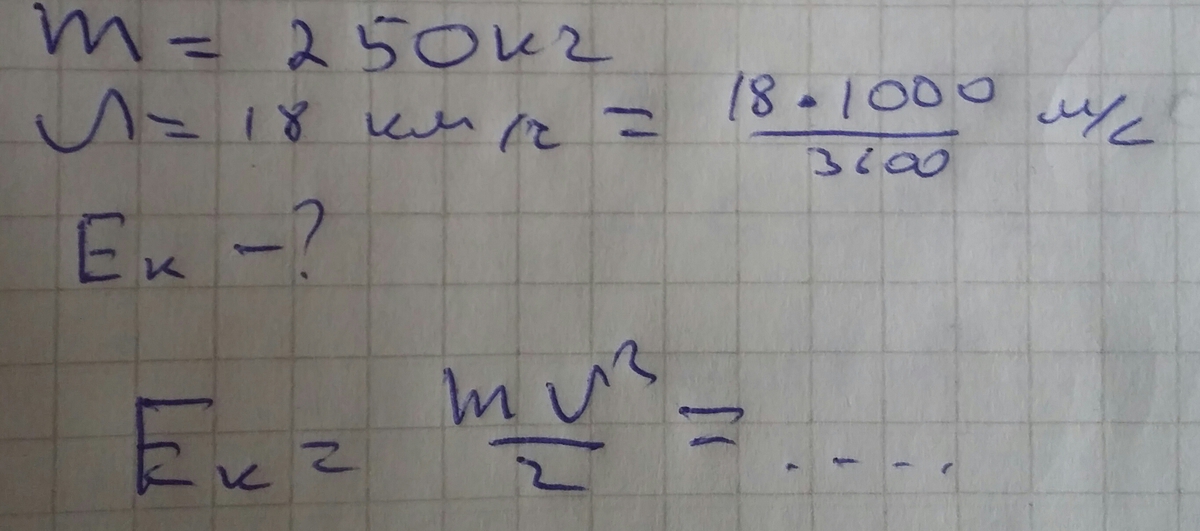 m = 250 кг
υ = 18 км/ч = 18 · 1000 / 3600 м/с
Eк – ?
Eк = mυ² / 2 = . . . .